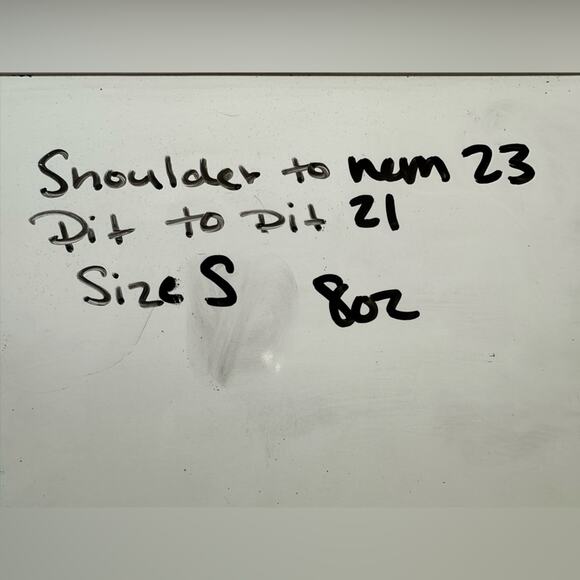 Shoulder to hem 23
Pit to Pit 21
Size S 8oz